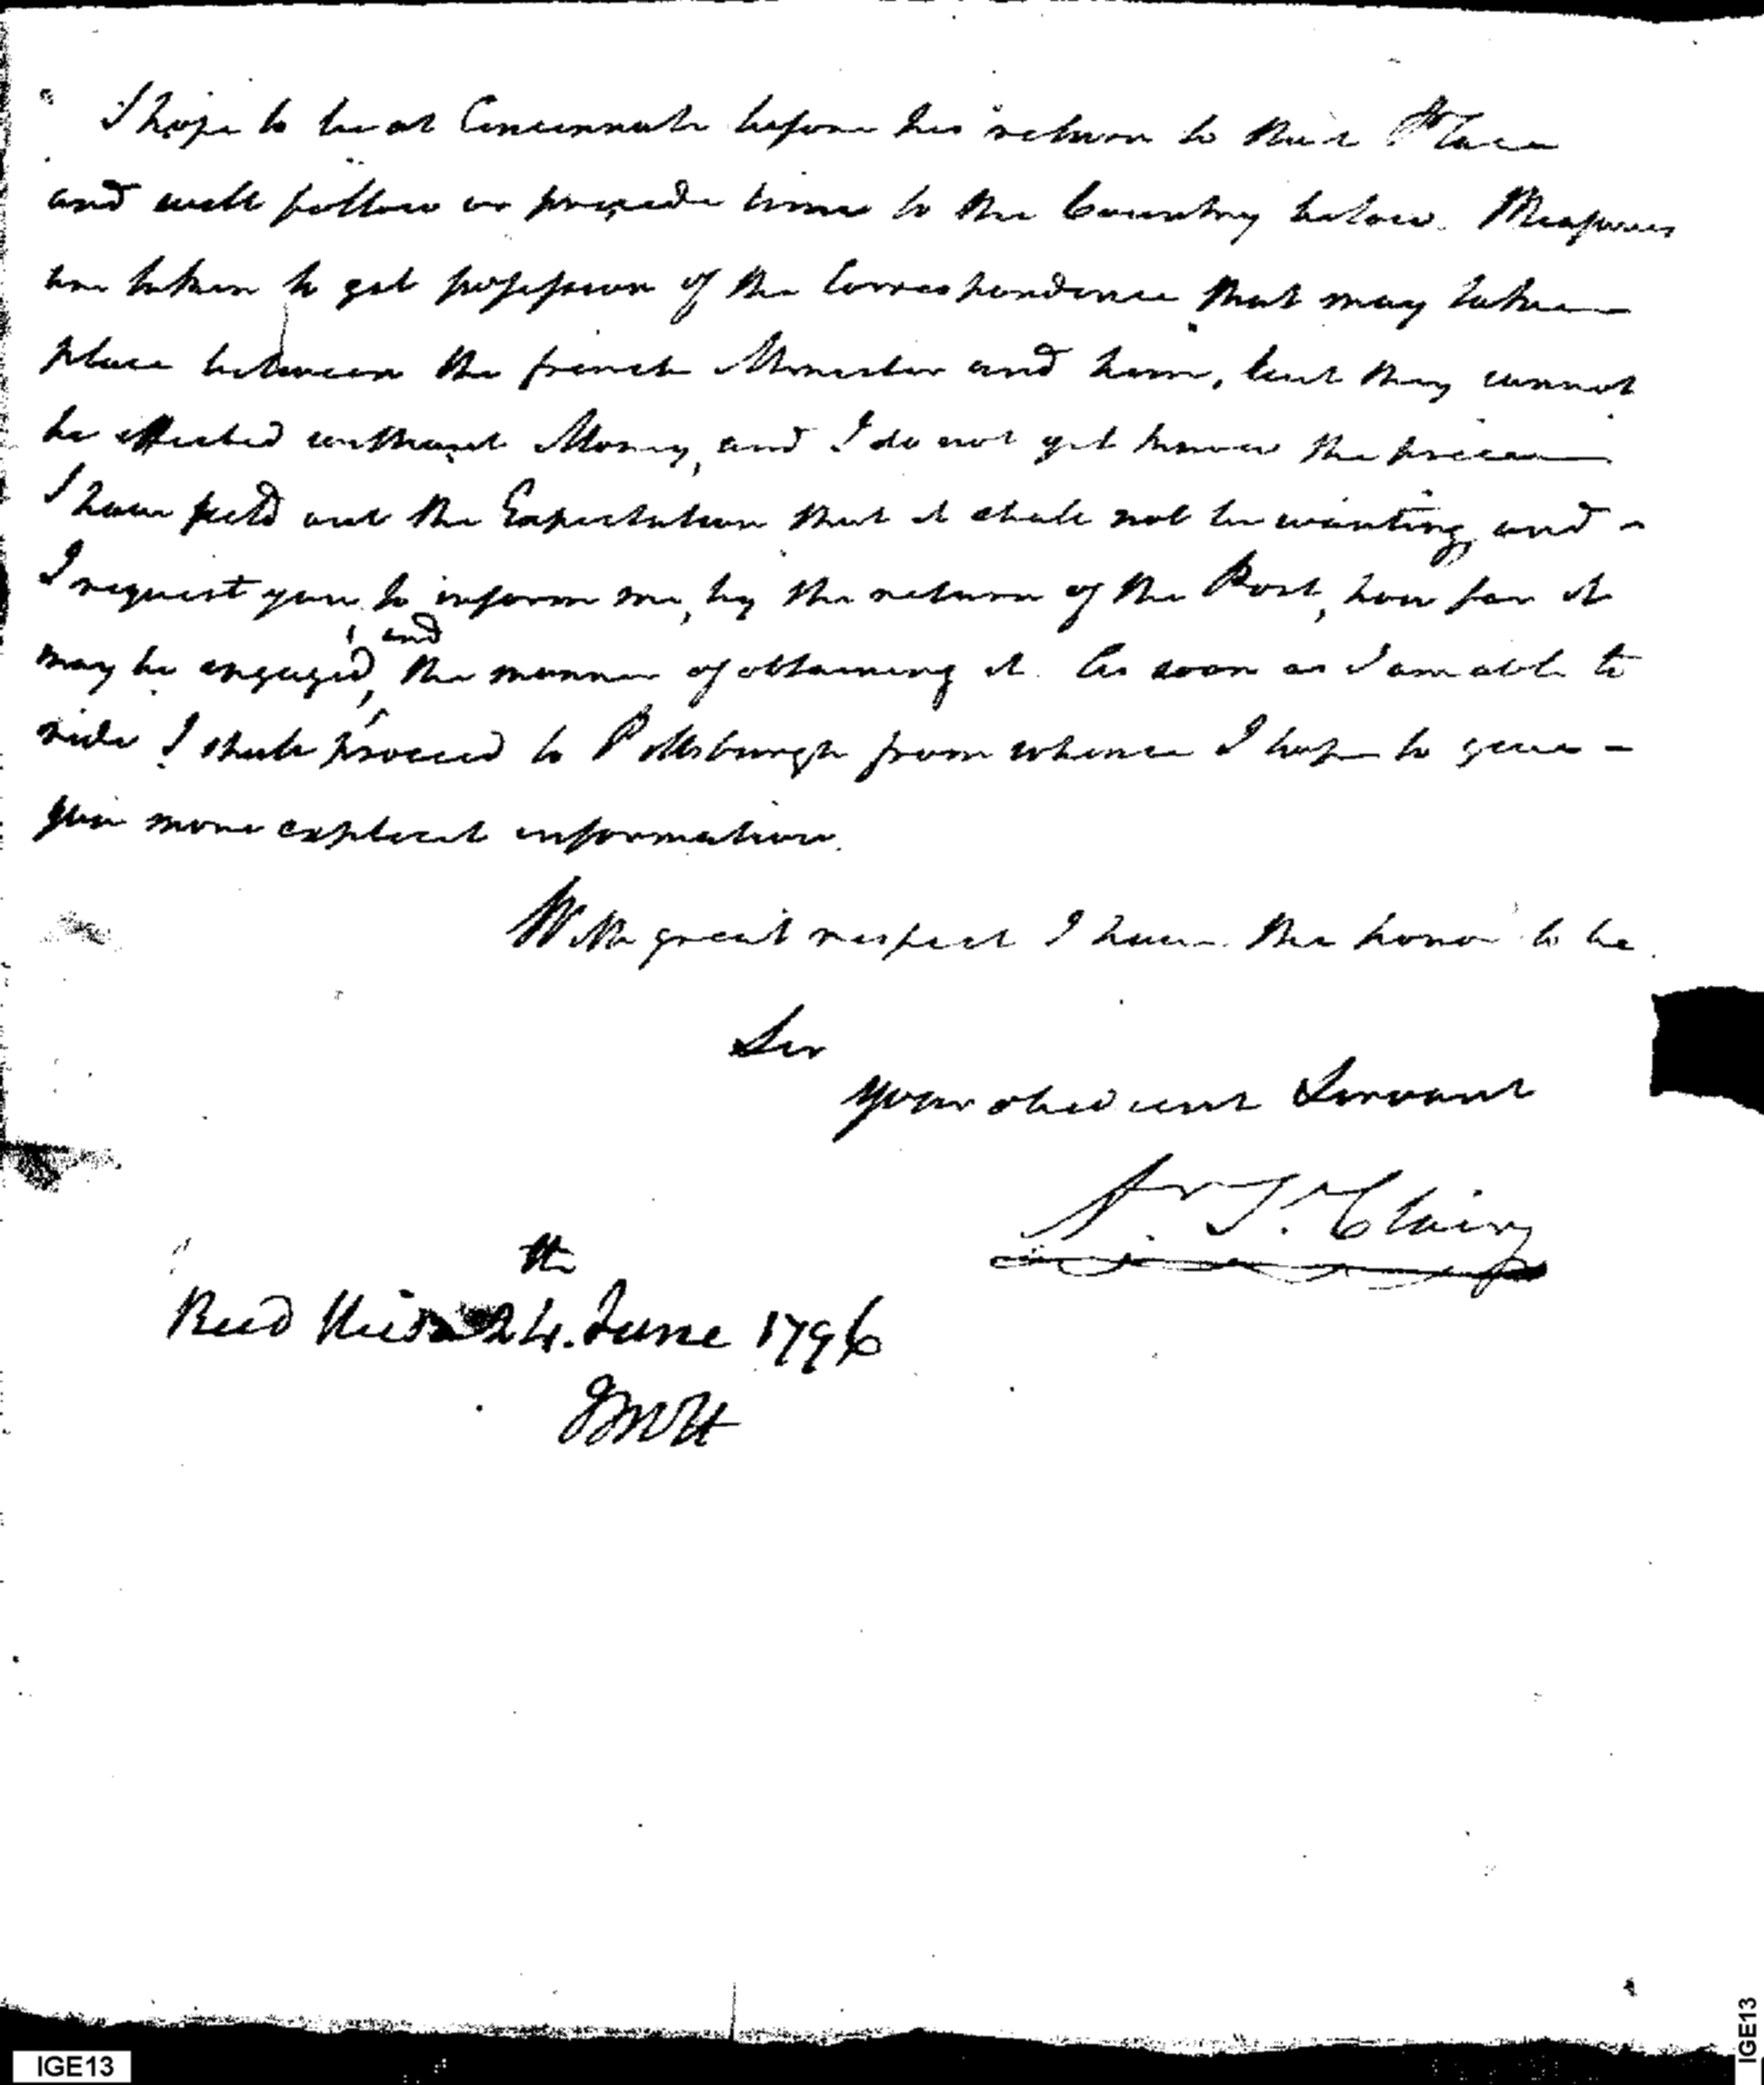 I hope to be at Cincinnati before his return to that Place
and will follow or precede him to the Country below. Measures
are taken to get possession of the Correspondence that may take
place between the french Minister and him, but they cannot
be effected without Money, and I do not yet know the precise
I have held out the Expectation that it shall not be wanting, and –
I request you to inform me, by the return of the Post, how far it
may be engaged, and the manner of obtaining it. As soon as I am able to
ride I shall proceed to Pittsburgh from whence I hope to give –
you more explicit information.
With great respect I have the honor to be
Sir
your obedient Servant
Ar. St. Clair
Recd this 24th. June 1796
JMcH
IGE13
IGE13